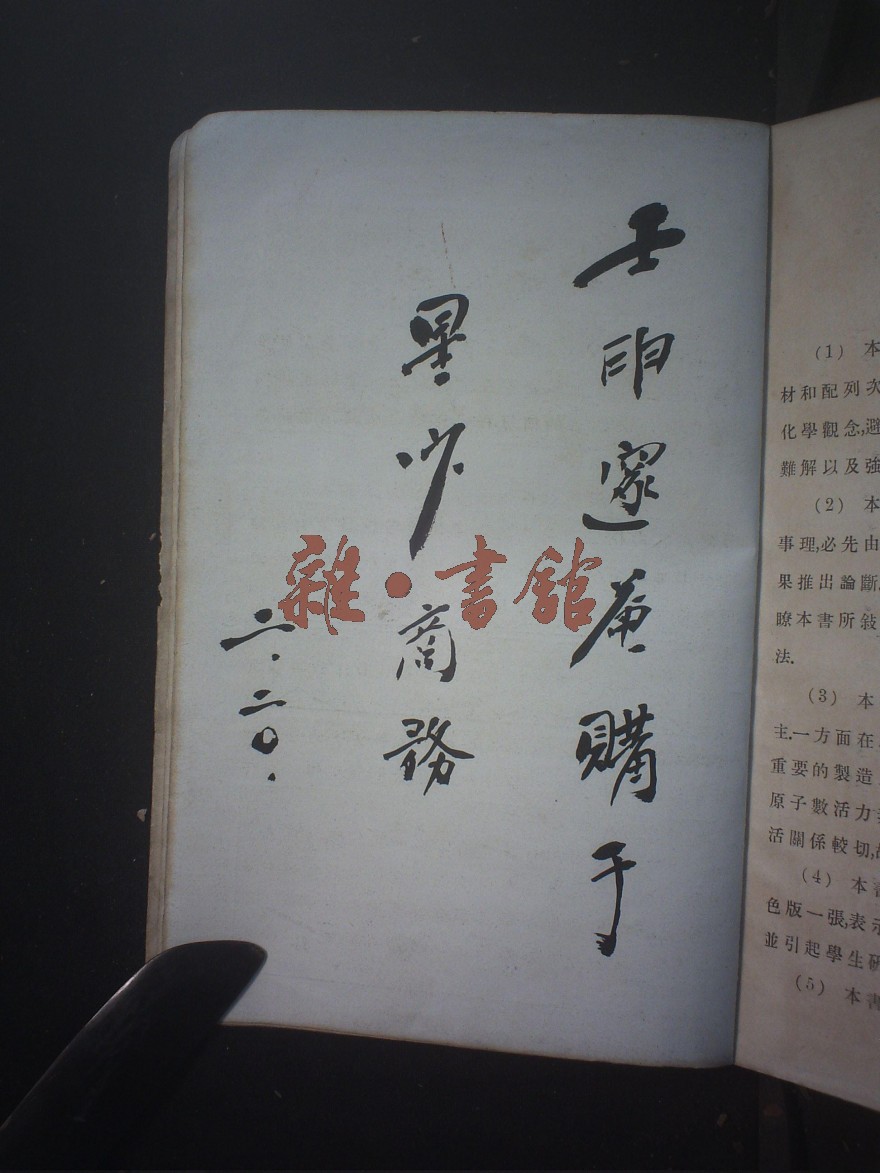 壬
購于
星
商務
二.二〇.
雜·書館
(1) 本
材和配列次
化學觀念,避
難解以及強
(2) 本
事理,必先由
果推出論斷
瞭本書所敍
法.
(3) 本
主.一方面在
重要的製造
原子數活力
活關係較切,
(4) 本書
色版一張,表示
並引起學生研
(5) 本書